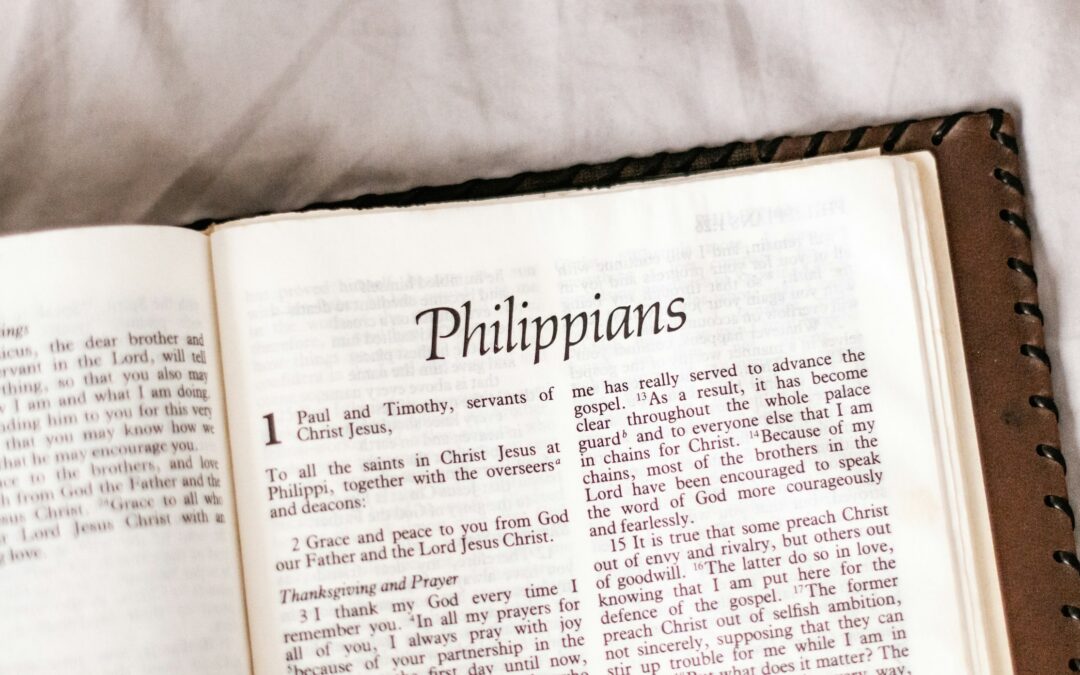 ings
icus, the dear brother and
ervant in the Lord, will tell
thing, so that you also may
w I am and what I am doing.
ding him to you for this very
that you may know how we
that he may encourage you.
ce to the brothers, and love
h from God the Father and the
sus Christ. 24Grace to all who
r Lord Jesus Christ with an
g love.
Philippians
1 Paul and Timothy, servants of
Christ Jesus,
To all the saints in Christ Jesus at
Philippi, together with the overseersa
and deacons:
2 Grace and peace to you from God
our Father and the Lord Jesus Christ.
Thanksgiving and Prayer
3 I thank my God every time I
remember you. 4In all my prayers for
all of you, I always pray with joy
5because of your partnership in the
from the first day until now,
me has really served to advance the
gospel. 13As a result, it has become
clear throughout the whole palace
guardb and to everyone else that I am
in chains for Christ. 14Because of my
chains, most of the brothers in the
Lord have been encouraged to speak
the word of God more courageously
and fearlessly.
15 It is true that some preach Christ
out of envy and rivalry, but others out
of goodwill. 16The latter do so in love,
knowing that I am put here for the
defence of the gospel. 17The former
preach Christ out of selfish ambition,
not sincerely, supposing that they can
stir up trouble for me while I am in
what does it matter? The
way,